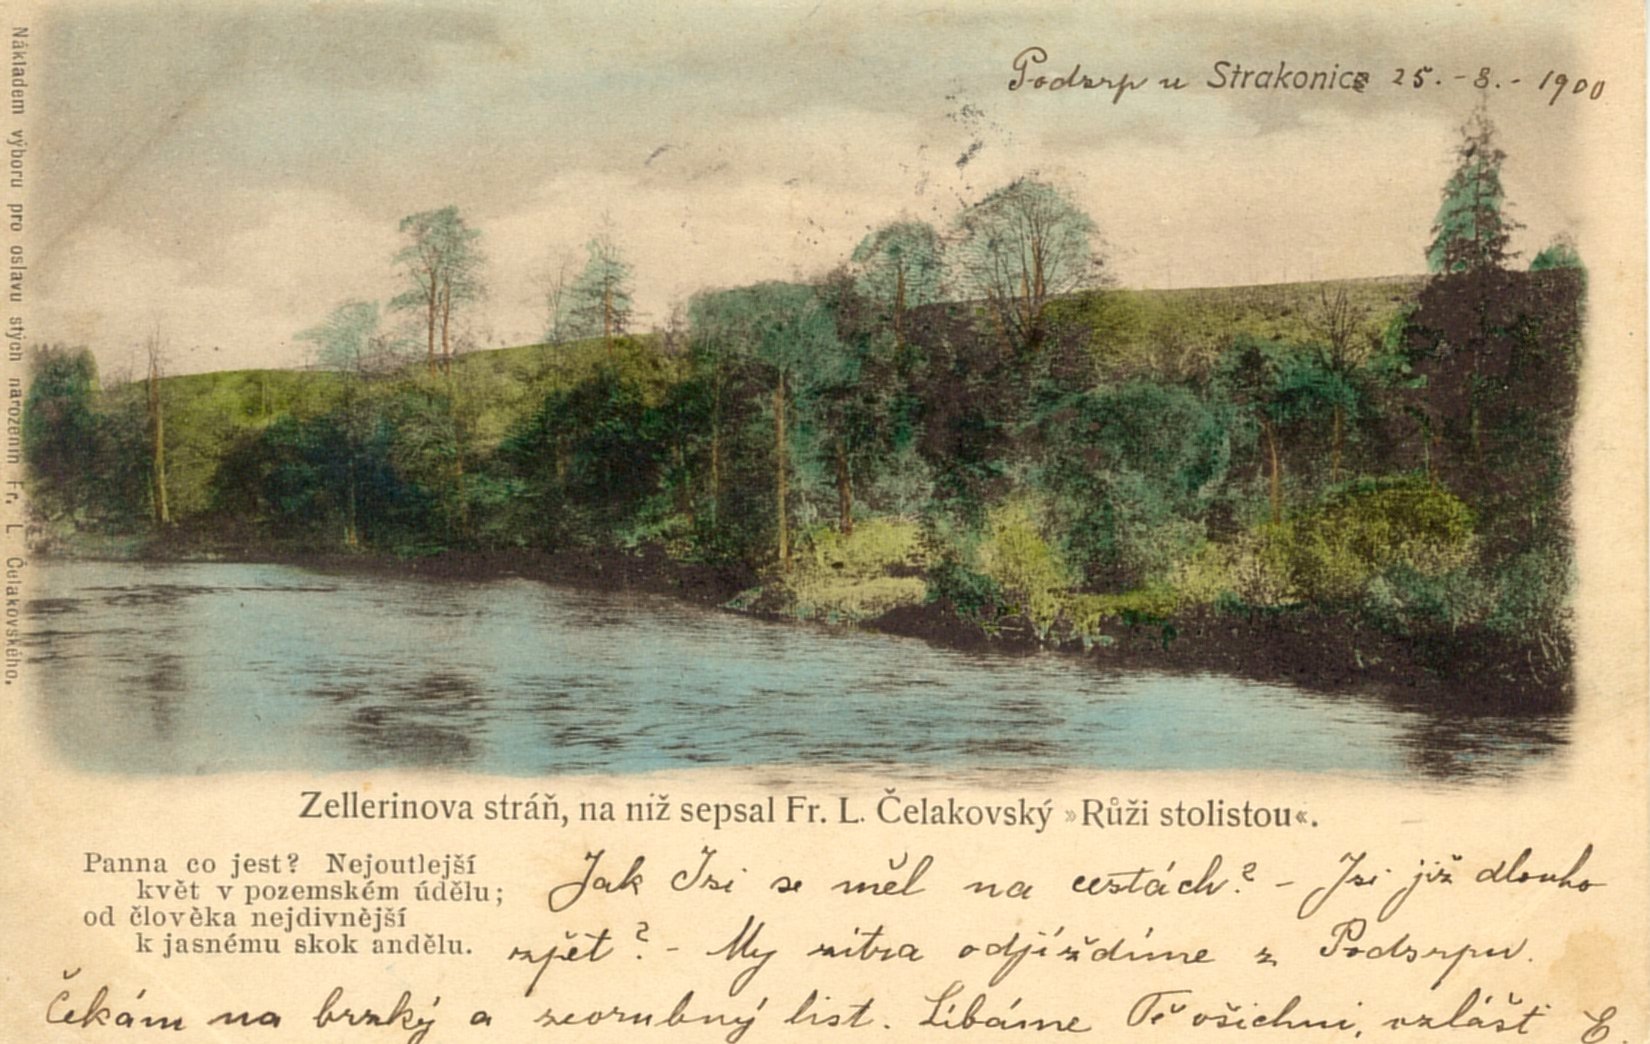 Podsrp u Strakonic 25.-8.-1900
Nákladem výboru pro oslavu stých narozenin Fr. L Čelakovského.
Zellerinova stráň, na niž sepsal Fr. L. Čelakovský »Růži stolistou«.
Panna co jest? Nejoutlejší
květ v pozemském údělu;
od člověka nejdivnější
k jasnému skok andělu.
Jak Jsi se měl na cestách? - Jsi již dlouho
zpět? - My zítra odjíždíme z Podsrpu.
Čekám na brzký a list. Líbáme Tě všichni, vzlášť E.